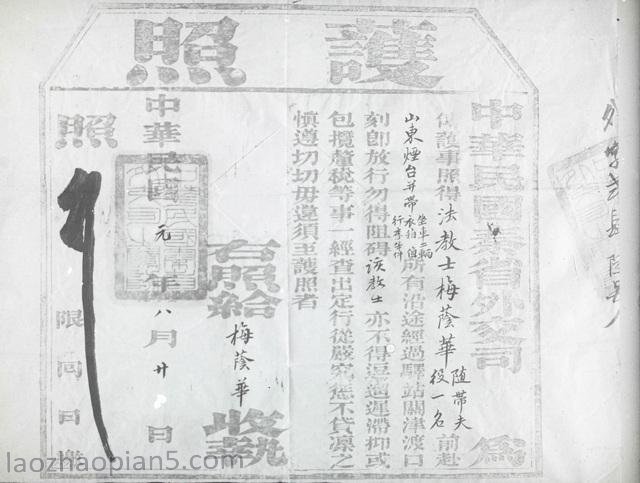 護照
中華民國奉省外交司 為
保護事照得法教士梅蔭華隨帶夫役一名前赴
山東煙台并帶坐車二輛 行李 件所有沿途經過驛站關津渡口
刻即放行勿得阻碍該教士亦不得逗遛遲滯抑或
包攬釐稅等事一經查出定行從嚴究懲不貸凜之
慎遵切切毋違須至護照者
右照給 梅蔭華 收執
中華民國元年八月廿日
照
限 回日繳
laozhaopian5.com